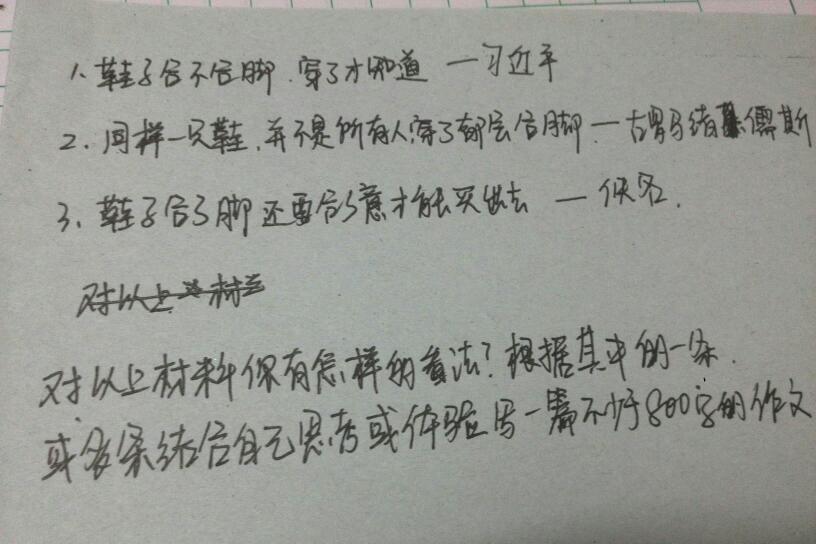 1、鞋子合不合脚.穿了才知道 —习近平
2.同样一只鞋,并不是所有人穿了都会合脚.—古罗马绪儒斯
3、鞋子合了脚还要合了意才能买出去 — 佚名.
对以上材
对以上材料你有怎样的看法?根据其中的一条.
或多条结合自己思考或体验写一篇不少于800字的作文